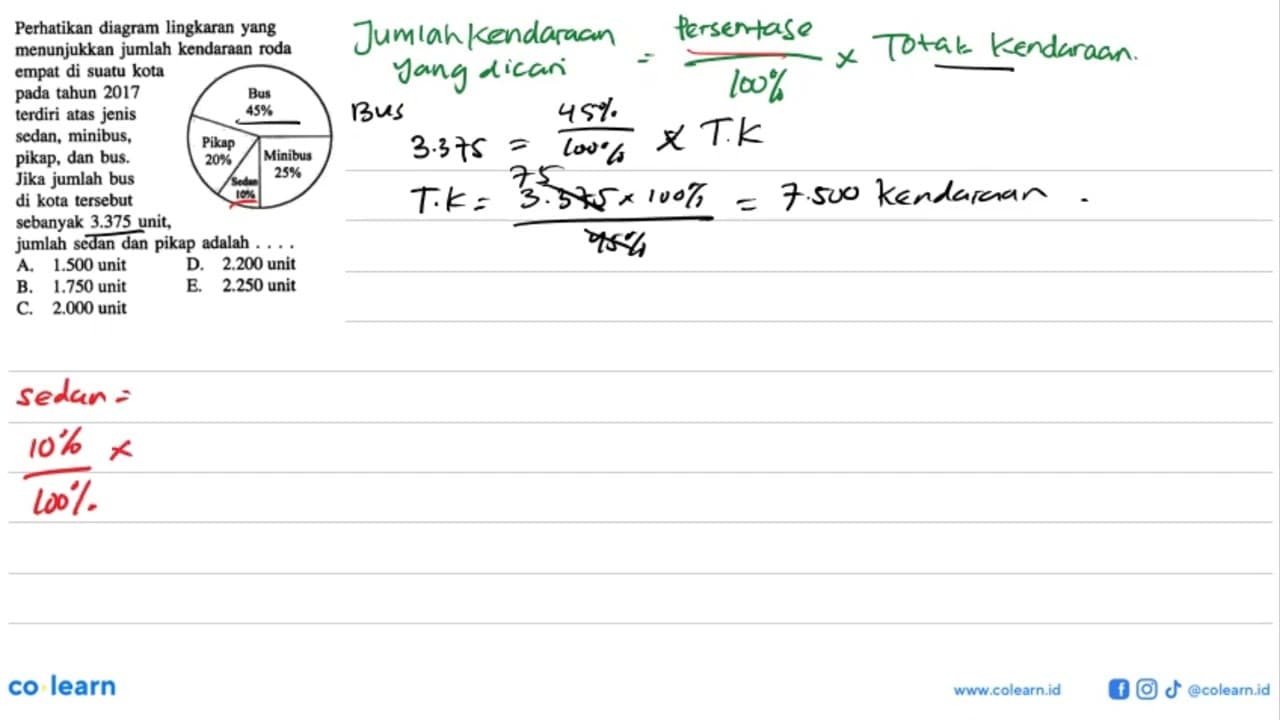 Perhatikan diagram lingkaran yang
menunjukkan jumlah kendaraan roda
empat di suatu kota
pada tahun 2017
terdiri atas jenis
sedan, minibus,
pikap, dan bus.
Jika jumlah bus
di kota tersebut
sebanyak 3.375 unit,
jumlah sedan dan pikap adalah . . . .
A. 1.500 unit D. 2.200 unit
B. 1.750 unit E. 2.250 unit
C. 2.000 unit
Bus
45%
Pikap
20%
Minibus
25%
Sedan
10%
Jumlah Kendaraan
yang dicari
= Persentase
100%
x Total Kendaraan.
Bus
3.375 = 45% / 100% x T.K
75
T.K = 3.375 x 100% / 45% = 7.500 Kendaraan .
sedan =
10% x
100%
co learn
www.colearn.id @colearn.id